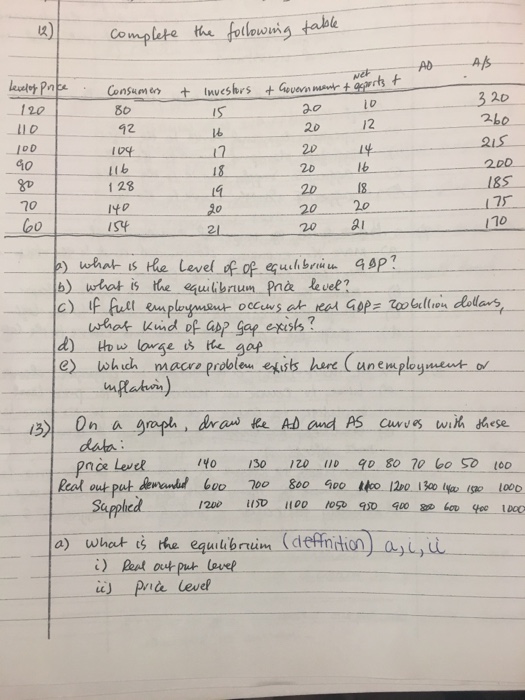 12) Complete the following table
Level of Price Consumers + Investors + Government + net exports + AD A/S
120 80 15 20 10 320
110 92 16 20 12 260
100 104 17 20 14 215
90 116 18 20 16 200
80 128 19 20 18 185
70 140 20 20 20 175
60 154 21 20 21 170
a) what is the Level of of equilibrium GDP?
b) what is the equilibrium price level?
c) If full employment occurs at real GDP = 200 billion dollars,
what kind of GDP gap exists?
d) How large is the gap
e) which macro problem exists here (unemployment or
inflation)
13) On a graph, draw the AD and AS curves with these
data:
price Level 140 130 120 110 90 80 70 60 50 100
Real out put demanded 600 700 800 900 1100 1200 1300 1400 1500 1000
Supplied 1200 1150 1100 1050 950 900 800 600 400 1000
a) what is the equilibrium (deffnition) a, i, ii
i) Real out put level
ii) price level